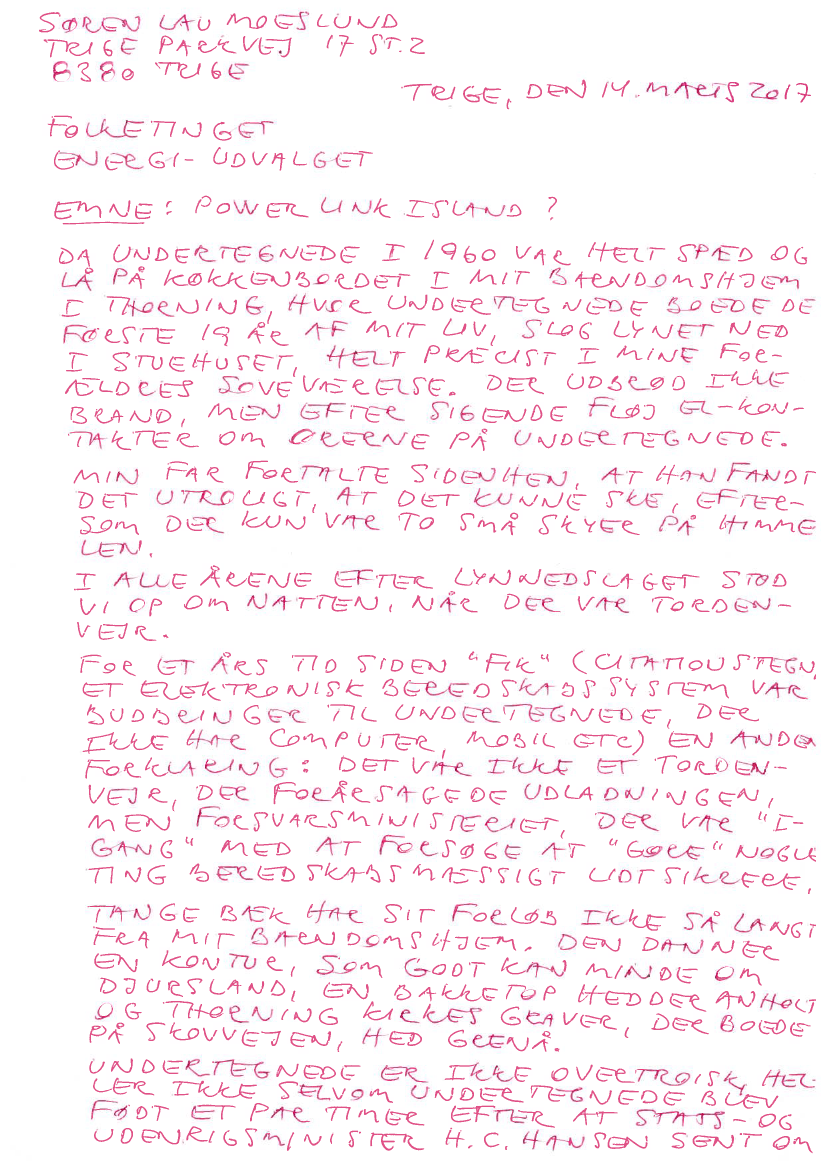 SØREN LAU MOESLUND
TRIGE PARKVEJ 17 ST.2
8380 TRIGE
TRIGE, DEN 14. MARTS 2017
FOLKETINGET
ENERGI-UDVALGET
EMNE: POWER LINK ISLAND ?
DA UNDERTEGNEDE I 1960 VAR HELT SPÆD OG
LÅ PÅ KØKKENBORDET I MIT BARNDOMSHJEM
I THORNING, HVOR UNDERTEGNEDE BOEDE DE
FØRSTE 19 ÅR AF MIT LIV, SLOG LYNET NED
I STUEHUSET, HELT PRÆCIST I MINE FOR-
ÆLDRES SOVEVÆRELSE. DER UDBRØD IKKE
BRAND, MEN EFTER SIGENDE FLØJ EL-KON-
TAKTER OM ØRERNE PÅ UNDERTEGNEDE.
MIN FAR FORTALTE SIDENHEN, AT HAN FANDT
DET UTROLIGT, AT DET KUNNE SKE, EFTER-
SOM DER KUN VAR TO SMÅ SKYER PÅ HIMME
LEN.
I ALLE ÅRENE EFTER LYNNEDSLAGET STOD
VI OP OM NATTEN, NÅR DER VAR TORDEN-
VEJR.
FOR ET ÅRS TID SIDEN "FIK" (CITATIONSTEGN,
ET ELEKTRONISK BEREDSKABSSYSTEM VAR
BUDBRINGER TIL UNDERTEGNEDE, DER
IKKE HAR COMPUTER, MOBIL ETC) EN ANDEN
FORKLARING: DET VAR IKKE ET TORDEN-
VEJR, DER FORÅRSAGEDE UDLADNINGEN,
MEN FORSVARSMINISTERIET, DER VAR "I-
GANG" MED AT FORSØGE AT "GØRE" NOGLE
TING BEREDSKABSMÆSSIGT LIDT SIKRERE.
TANGE BÆK HAR SIT FORLØB IKKE SÅ LANGT
FRA MIT BARNDOMSHJEM. DEN DANNER
EN KONTUR, SOM GODT KAN MINDE OM
DJURSLAND, EN BAKKETOP HEDDER ANHOLT
OG THORNING KIRKES GRAVER, DER BOEDE
PÅ SKOVVEJEN, HED GRENÅ.
UNDERTEGNEDE ER IKKE OVERTROISK, HEL-
LER IKKE SELVOM UNDERTEGNEDE BLEV
FØDT ET PAR TIMER EFTER AT STATS- OG
UDENRIGSMINISTER H.C. HANSEN SENT OM